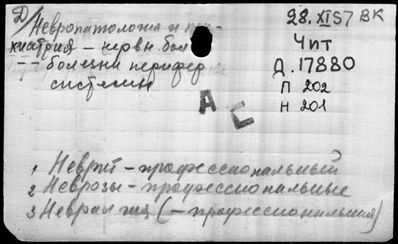 Д/ Невропатология и пси-
хиатрия – нервн бол
– – болезни перифер
системы
28.XI 57 ВК
Чит
Д.17880
П 202
Н 201
АС
1 Неврит – профессиональный
2 Неврозы – профессиональные
3 Невралгия (– профессиональная)